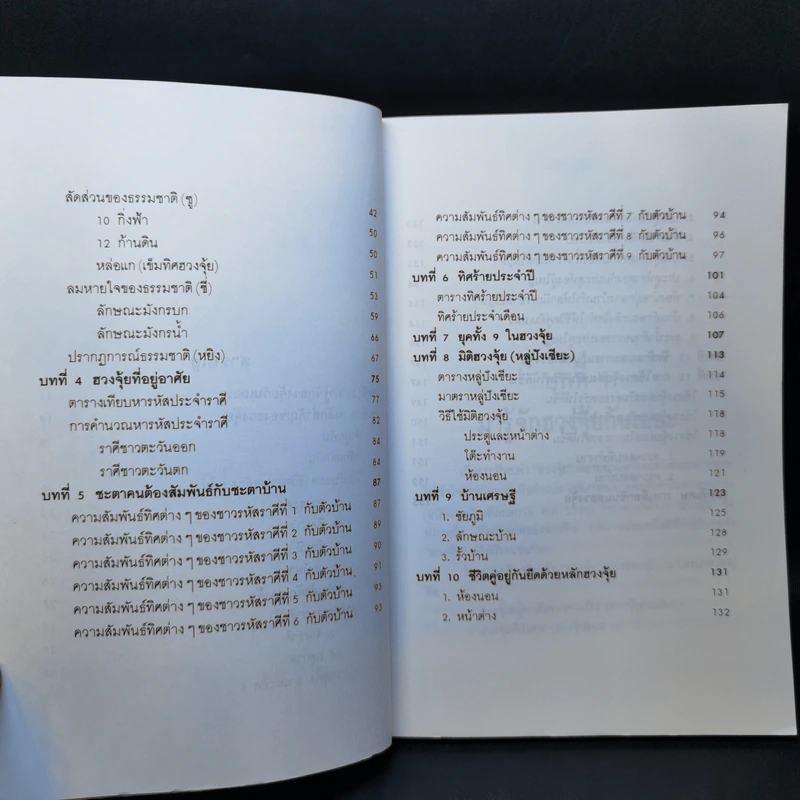 สัดส่วนของธรรมชาติ (ซู) 42
10 กิ่งฟ้า 50
12 ก้านดิน 50
หล่อแก (เข็มทิศฮวงจุ้ย) 51
ลมหายใจของธรรมชาติ (ชี่) 53
ลักษณะมังกรบก 59
ลักษณะมังกรน้ำ 66
ปรากฏการณ์ธรรมชาติ (หยิง) 67
บทที่ 4 ฮวงจุ้ยที่อยู่อาศัย 75
ตารางเทียบหารหัสประจำราศี 77
การคำนวณหารหัสประจำราศี 82
ราศีชาวตะวันออก 84
ราศีชาวตะวันตก 84
บทที่ 5 ชะตาคนต้องสัมพันธ์กับชะตาบ้าน 87
ความสัมพันธ์ทิศต่าง ๆ ของชาวรหัสราศีที่ 1 กับตัวบ้าน 87
ความสัมพันธ์ทิศต่าง ๆ ของชาวรหัสราศีที่ 2 กับตัวบ้าน 89
ความสัมพันธ์ทิศต่าง ๆ ของชาวรหัสราศีที่ 3 กับตัวบ้าน 90
ความสัมพันธ์ทิศต่าง ๆ ของชาวรหัสราศีที่ 4 กับตัวบ้าน 91
ความสัมพันธ์ทิศต่าง ๆ ของชาวรหัสราศีที่ 5 กับตัวบ้าน 93
ความสัมพันธ์ทิศต่าง ๆ ของชาวรหัสราศีที่ 6 กับตัวบ้าน 93
ความสัมพันธ์ทิศต่าง ๆ ของชาวรหัสราศีที่ 7 กับตัวบ้าน 94
ความสัมพันธ์ทิศต่าง ๆ ของชาวรหัสราศีที่ 8 กับตัวบ้าน 96
ความสัมพันธ์ทิศต่าง ๆ ของชาวรหัสราศีที่ 9 กับตัวบ้าน 97
บทที่ 6 ทิศร้ายประจำปี 101
ตารางทิศร้ายประจำปี 104
ทิศร้ายประจำเดือน 106
บทที่ 7 ยุคทั้ง 9 ในฮวงจุ้ย 107
บทที่ 8 มิติฮวงจุ้ย (หลู่ปังเซียะ) 113
ตารางหลู่ปังเซียะ 114
มาตราหลู่ปังเซียะ 115
วิธีใช้มิติฮวงจุ้ย 118
ประตูและหน้าต่าง 118
โต๊ะทำงาน 119
ห้องนอน 121
บทที่ 9 บ้านเศรษฐี 123
1. ชัยภูมิ 125
2. ลักษณะบ้าน 128
3. รั้วบ้าน 129
บทที่ 10 ชีวิตคู่อยู่กันยืดด้วยหลักฮวงจุ้ย 131
1. ห้องนอน 131
2. หน้าต่าง 132